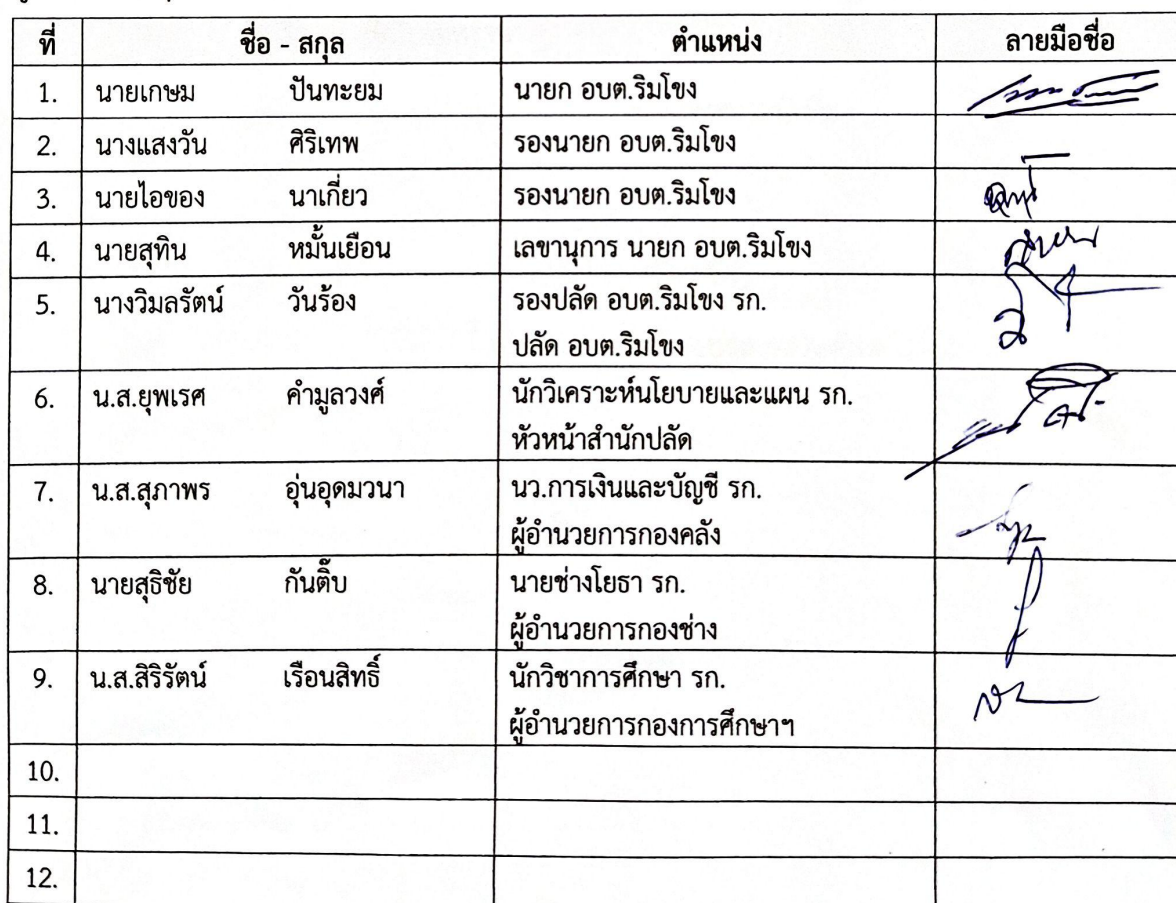 ที่ ชื่อ - สกุล ตำแหน่ง ลายมือชื่อ
1. นายเกษม ปันทะยม นายก อบต.ริมโขง
2. นางแสงวัน ศิริเทพ รองนายก อบต.ริมโขง
3. นายไอของ นาเกี่ยว รองนายก อบต.ริมโขง
4. นายสุทิน หมั้นเยือน เลขานุการ นายก อบต.ริมโขง
5. นางวิมลรัตน์ วันร้อง รองปลัด อบต.ริมโขง รก.
ปลัด อบต.ริมโขง
6. น.ส.ยุพเรศ คำมูลวงศ์ นักวิเคราะห์นโยบายและแผน รก.
หัวหน้าสำนักปลัด
7. น.ส.สุภาพร อุ่นอุดมวนา นว.การเงินและบัญชี รก.
ผู้อำนวยการกองคลัง
8. นายสุธิชัย กันติ๊บ นายช่างโยธา รก.
ผู้อำนวยการกองช่าง
9. น.ส.สิริรัตน์ เรือนสิทธิ์ นักวิชาการศึกษา รก.
ผู้อำนวยการกองการศึกษาฯ
10.
11.
12.